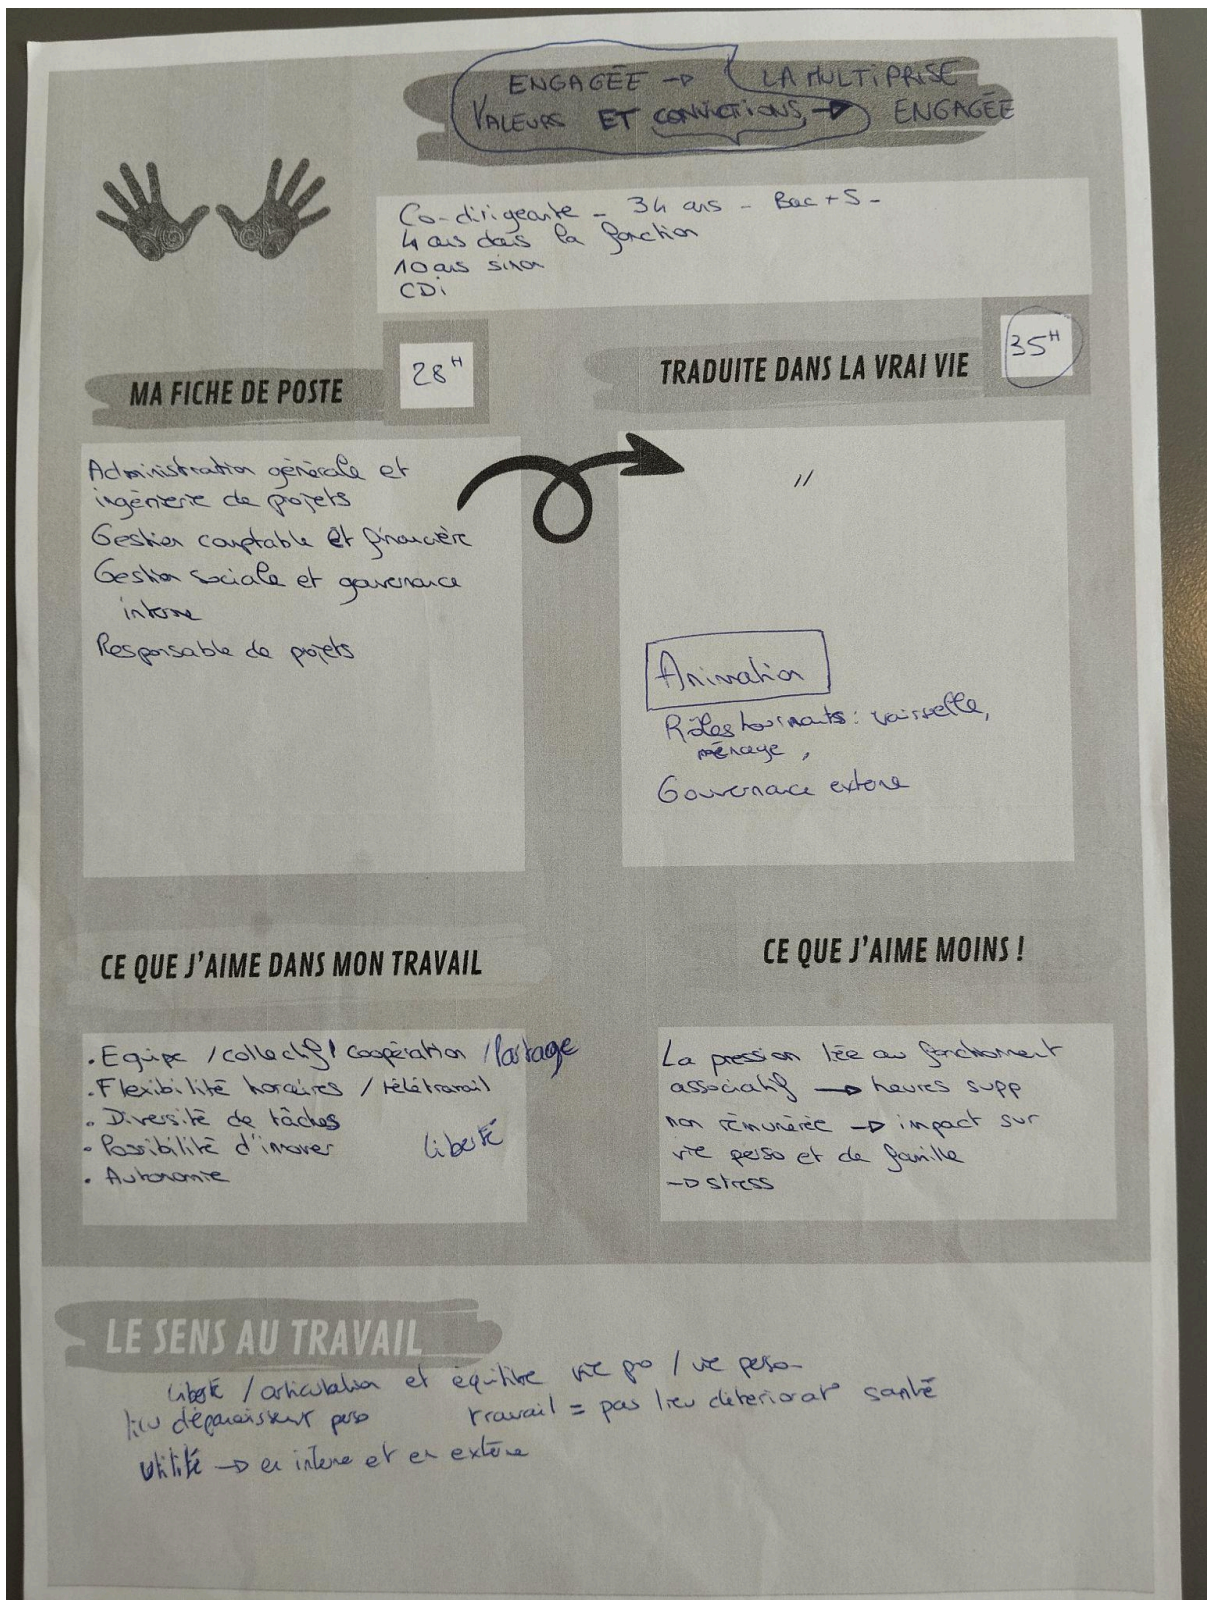 ENGAGÉE → LA MULTIPRISE
VALEURS ET CONVICTIONS → ENGAGÉE
Co-dirigeante - 34 ans - Bac + 5 -
4 ans dans la fonction
10 ans sinon
CDi
MA FICHE DE POSTE
28H
TRADUITE DANS LA VRAI VIE
35H
Administration générale et
ingénierie de projets
Gestion comptable et financière
Gestion sociale et gouvernance
interne
Responsable de projets
//
Animation
Rôles tournants : vaisselle,
ménage,
Gouvernance externe
CE QUE J'AIME DANS MON TRAVAIL
• Equipe / collectif / coopération / Partage
• Flexibilité horaires / télétravail
• Diversité de tâches
• Possibilité d'innover liberté
• Autonomie
CE QUE J'AIME MOINS !
La pression liée au fonctionnement
associatif → heures supp
non rémunérée → impact sur
vie perso et de famille
→ stress
LE SENS AU TRAVAIL
liberté / articulation et équilibre vie pro / vie perso
lieu d'épanouissement perso travail = pas lieu déterioratº santé
utilité → en interne et en externe